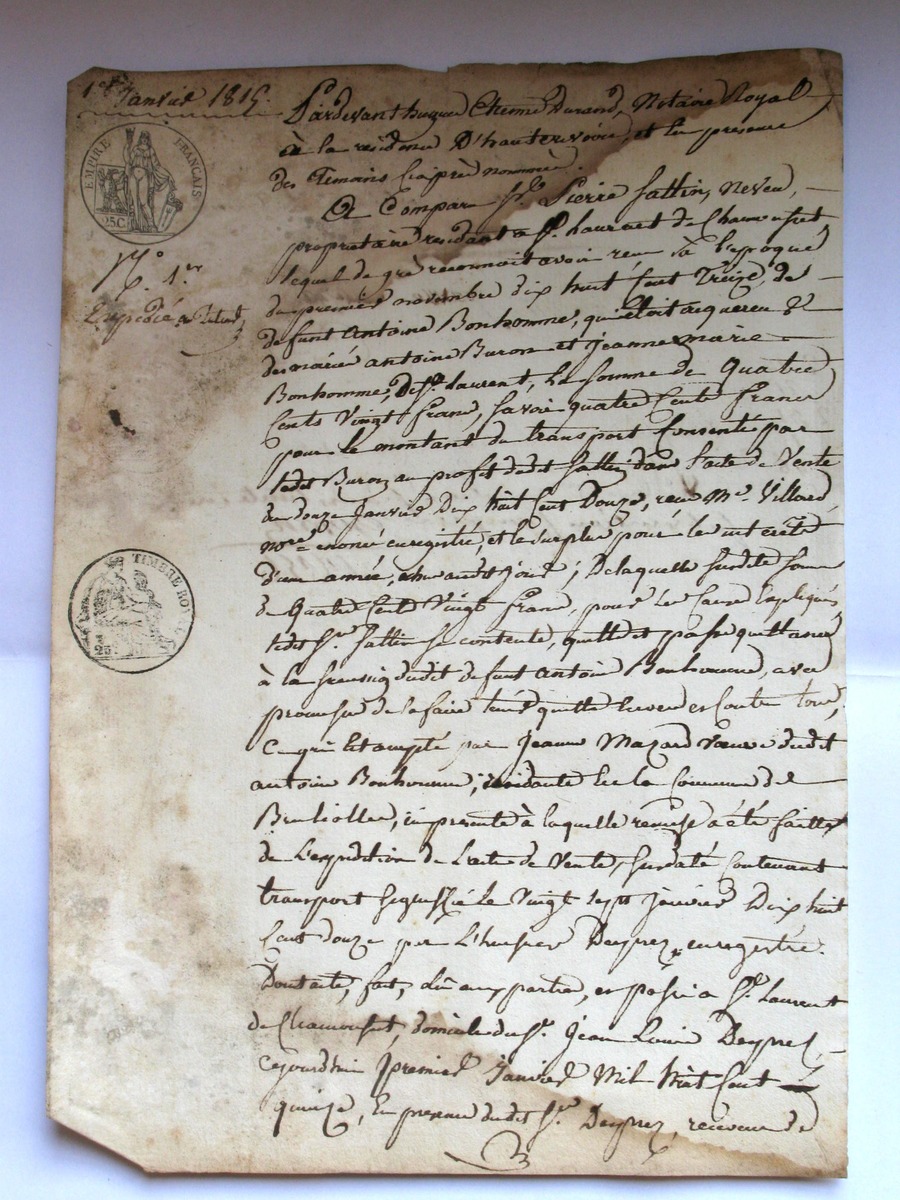 1er Janvier 1815.
EMPIRE FRANÇAIS
25C
N.° 1.er
Expedié
TIMBRE ROYAL
25
Pardevant hugue Etienne Durand, Notaire Royal
à la residence D'hauterivoire, et En presence
des Temoins Ciaprès nommés
A Comparu Sr. Pierre Sattin, Neveu,
propriétaire residant a St. Laurent de Chamousset
lequel de gré reconnoit avoir reçu Sà l'epoque
du premier novembre dix huit Cent Treize, de
defunt Antoine Bonhomme, qui étoit acquereur
des mariés antoine Buron et jeanne marie
Bonhomme, De St. Laurent, La Somme de Quatre
Cents Vingt franc, Savoir quatre Cents francs
pour le montant du transport Consenti par
ledit Buron au profit dudit Sattin dans l'acte de Vente
du douze Janvier Dix huit Cent Douze, reçu Me. Villard
nore. enregistré, et le Surplus pour les interêts
d'une année, audit jour; De laquelle Susdite Somme
de Quatre Cents Vingt franc, pour les Causes Expliqués
ledit Sr. Sattin Se contente, quitte et passe quittance
à la dudit defunt Antoine Bonhomme, avec
promesse de la faire tenir quitte Envers et Contre tous,
Ce qui Est accepté par Jeanne Mazard Veuve dudit
antoine Bonhomme, residante En la Commune de
Brulliolles, ici presente à laquelle remise a été faitte
de L'expedition de L'acte de Vente, Susdaté Contenant
transport Signiffié le Vingt Sept Janvier Dix huit
Cent douze par L'huissier Deyprez enregistré.
Dont acte, fait, Lu aux parties, et passé a St. Laurent
de Chamousset, domicile du Sr. Jean Louis Deyprez,
cejourdhui premier Janvier Mil huit Cent
quinze, En presence dudit Sr. Deyprez, receveur de